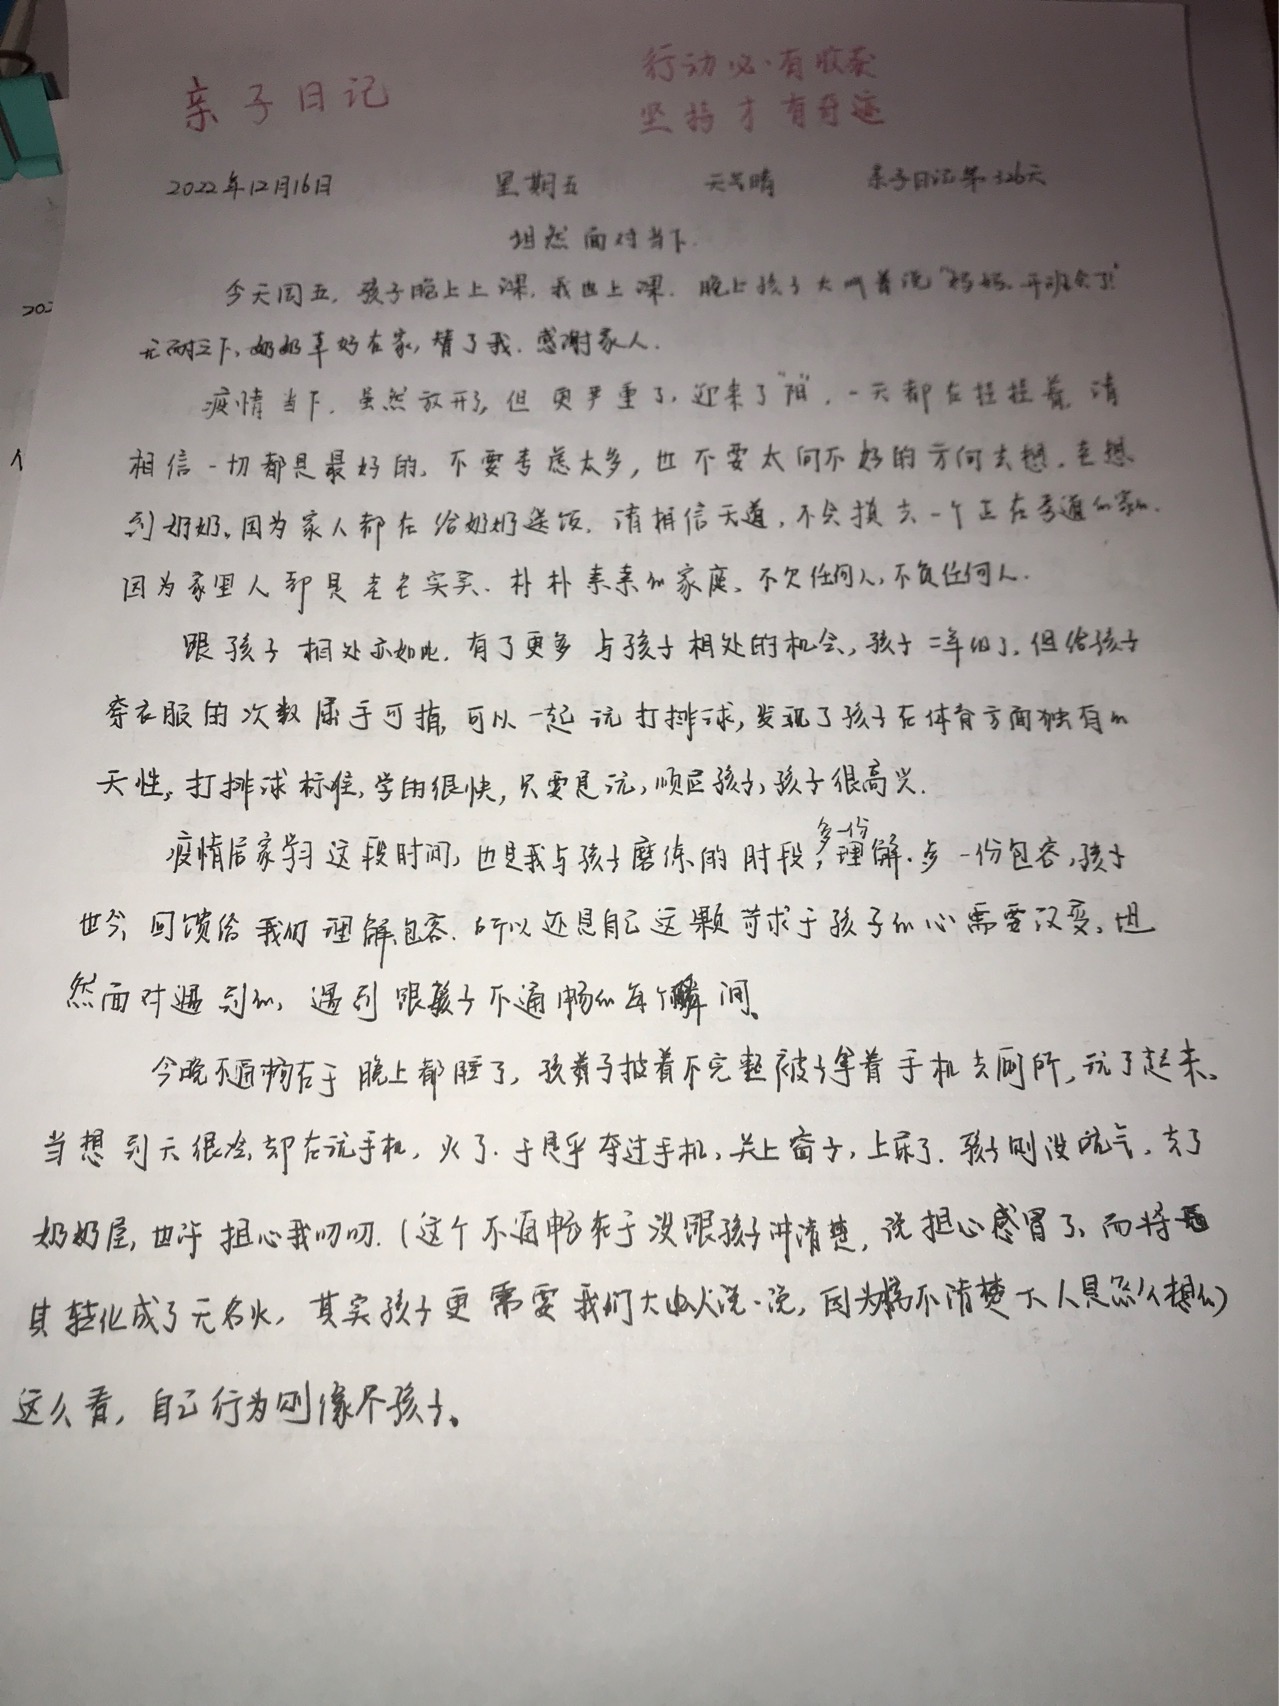 亲子日记
行动必有收获
坚持才有奇迹
2022年12月16日 星期五 天气晴 亲子日记第326天
坦然面对当下
今天周五,孩子晚上上课,我也上课.晚上孩子大叫着说"妈妈,开班会了!"
无耐之下,奶奶幸好在家,替了我.感谢家人.
疫情当下,虽然放开了,但更严重了,迎来了"阳",一天都在拄拄着,请
相信一切都是最好的,不要考虑太多,也不要太向不好的方向去想,在想
到奶奶,因为家人都在给奶奶送饭.请相信天道,不会损去一个正在
因为家里人都是老老实实.朴朴素素的家庭、不欠任何人,不负任何人.
跟孩子相处亦如此.有了更多与孩子相处的机会,孩子二年级了,但给孩子
穿衣服的次数屈手可指,可以一起玩打排球,发现了孩子在体育方面独有的
天性,打排球标准,学的很快,只要是玩,顺应孩子,孩子很高兴.
疫情居家学习这段时间,也是我与孩子磨练的时段,多一份理解.多一份包容,孩子
也会回馈给我们理解包容.所以还是自己这颗苛求于孩子的心需要改变,坦
然面对遇到的,遇到跟孩子不通畅的每个瞬间。
今晚不通畅在于晚上都睡了,孩子披着不完整被子拿着手机去厕所,玩了起来。
当想到天很冷,却在玩手机,火了.于是乎夺过手机,关上窗子,上床了.孩子则没吭气,去了
奶奶屋,也许担心我叨叨.(这个不通畅在于没跟孩子讲清楚,说担心感冒了,而将
其转化成了无名火,其实孩子更需要我们大人说一说,因为搞不清楚大人是怎么想的)
这么看,自己行为则像个孩子。